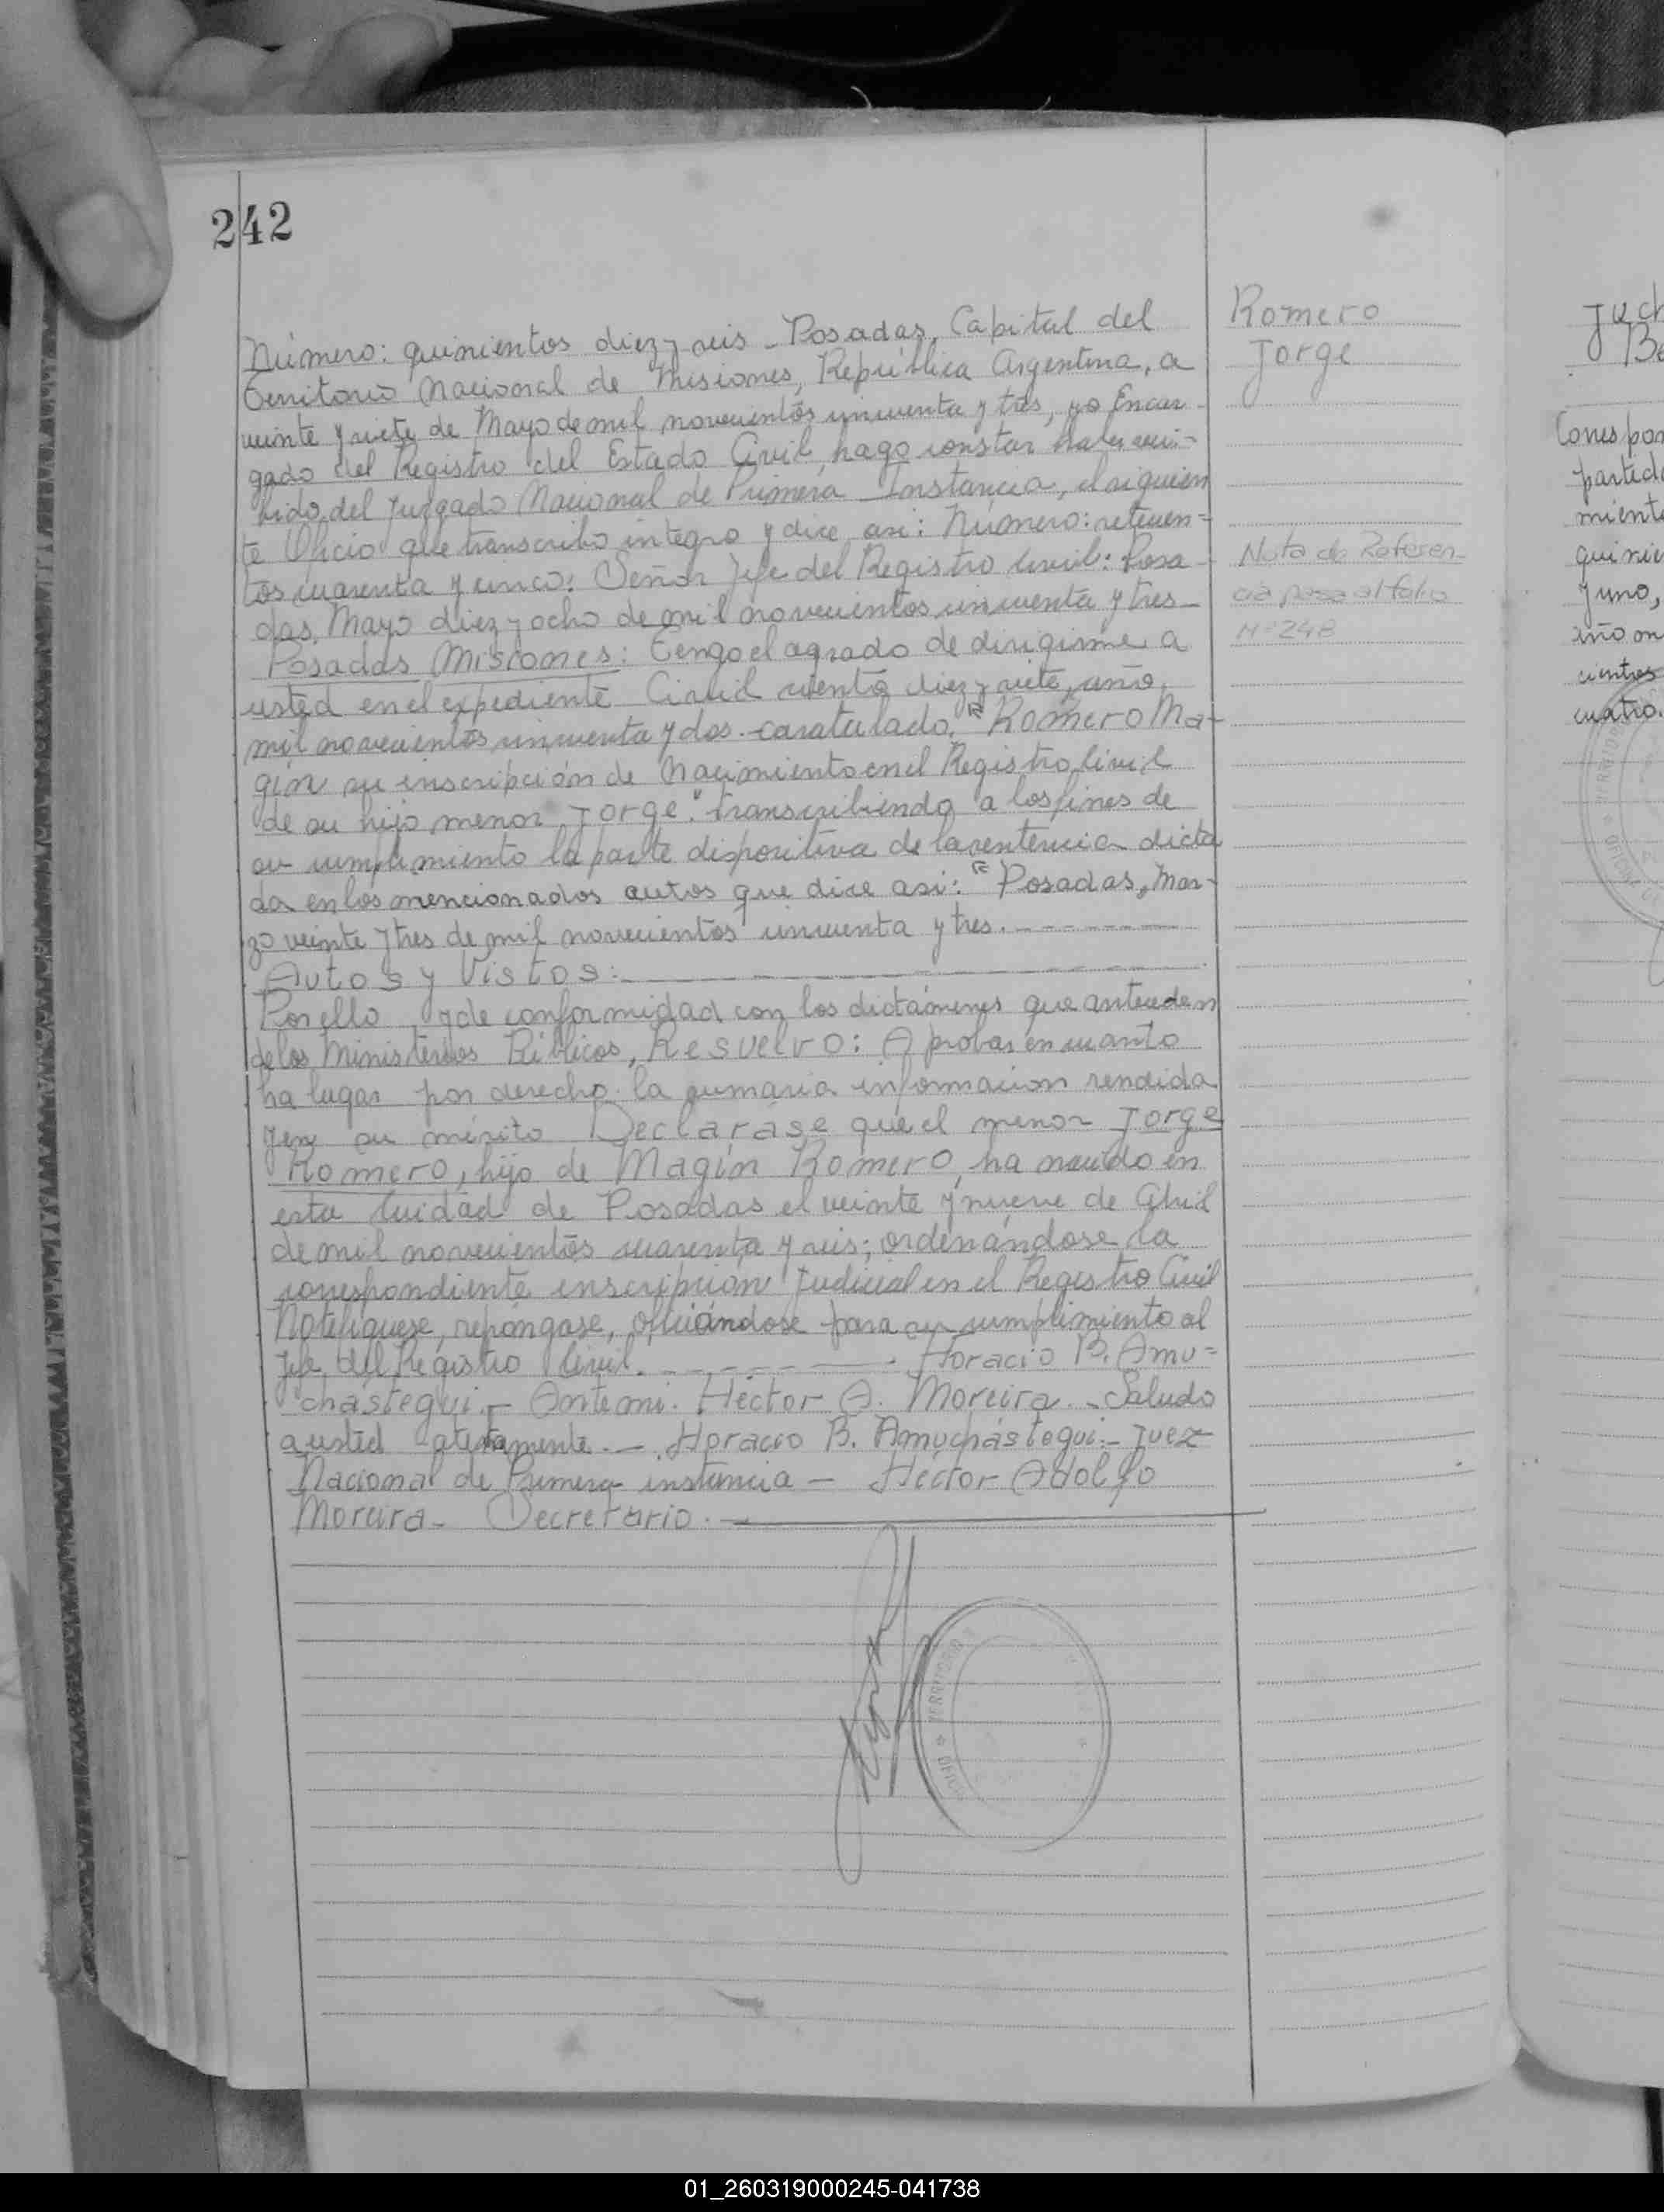 242
Número: quinientos diez y seis - Posadas, Capital del
Territorio Nacional de Misiones, República Argentina, a
veinte y siete de Mayo de mil novecientos cincuenta y tres, yo Encar-
gado del Registro del Estado Civil, hago constar haber reci-
bido, del Juzgado Nacional de Primera Instancia, el siguien
te Oficio que transcribo integro y dice asi: Número: setecien=
tos cuarenta y cinco: Señor Jefe del Registro Civil: Posa-
das, Mayo diez y ocho de mil novecientos cincuenta y tres-
Posadas Misiones: Tengo el agrado de dirigirme a
usted en el expediente Civil ciento diez y siete, año,
mil novecientos cincuenta y dos.- caratulado, "Romero Ma-
gín su inscripción de Nacimiento en el Registro Civil
de su hijo menor Jorge". transcribiendo a los fines de
su cumplimiento la parte dispositiva de la sentencia dicta
da en los mencionados autos que dice asi: "Posadas, Mar-
zo veinte y tres de mil novecientos cincuenta y tres.---------
Autos y Vistos:
Por ello, y de conformidad con los dictámenes que anteceden
de los Ministerios Públicos, Resuelvo: Aprobar en cuanto
ha lugar por derecho la sumaria informacion rendida
y en su mérito Declárase que el menor Jorge
Romero, hijo de Magín Romero, ha nacido en
esta Ciudad de Posadas el veinte y nueve de Abril
de mil novecientos cuarenta y seis; ordenándose la
correspondiente inscripción Judicial en el Registro Civil
Notifíquese, repóngase, oficiándose para su cumplimiento al
Jefe del Registro Civil.---------- Horacio B. Amu=
chástegui.- Ante mi. Héctor A. Moreira.- Saludo
a usted atentamente.- Horacio B. Amuchástegui.- Juez
Nacional de Primera instancia - Héctor Adolfo
Moreira- Secretario.-
TERRITORIO
OFICI
Romero
Jorge
Nota de Referen-
cia pasa al folio
Nº 248
Juch
Be
Corespon
partida
miento
quinie
y uno,
año m
cientos
cuatro.
01_260319000245-041738